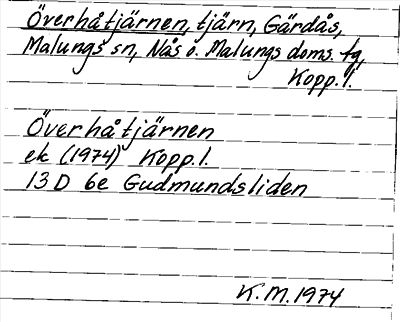 Överhåtjärnen, tjärn, Gärdås,
Malungs sn, Nås o. Malungs doms. fg,
Kopp. l.
Överhåtjärnen
ek (1974) Kopp. l.
13 D 6e Gudmundsliden
K.M. 1974